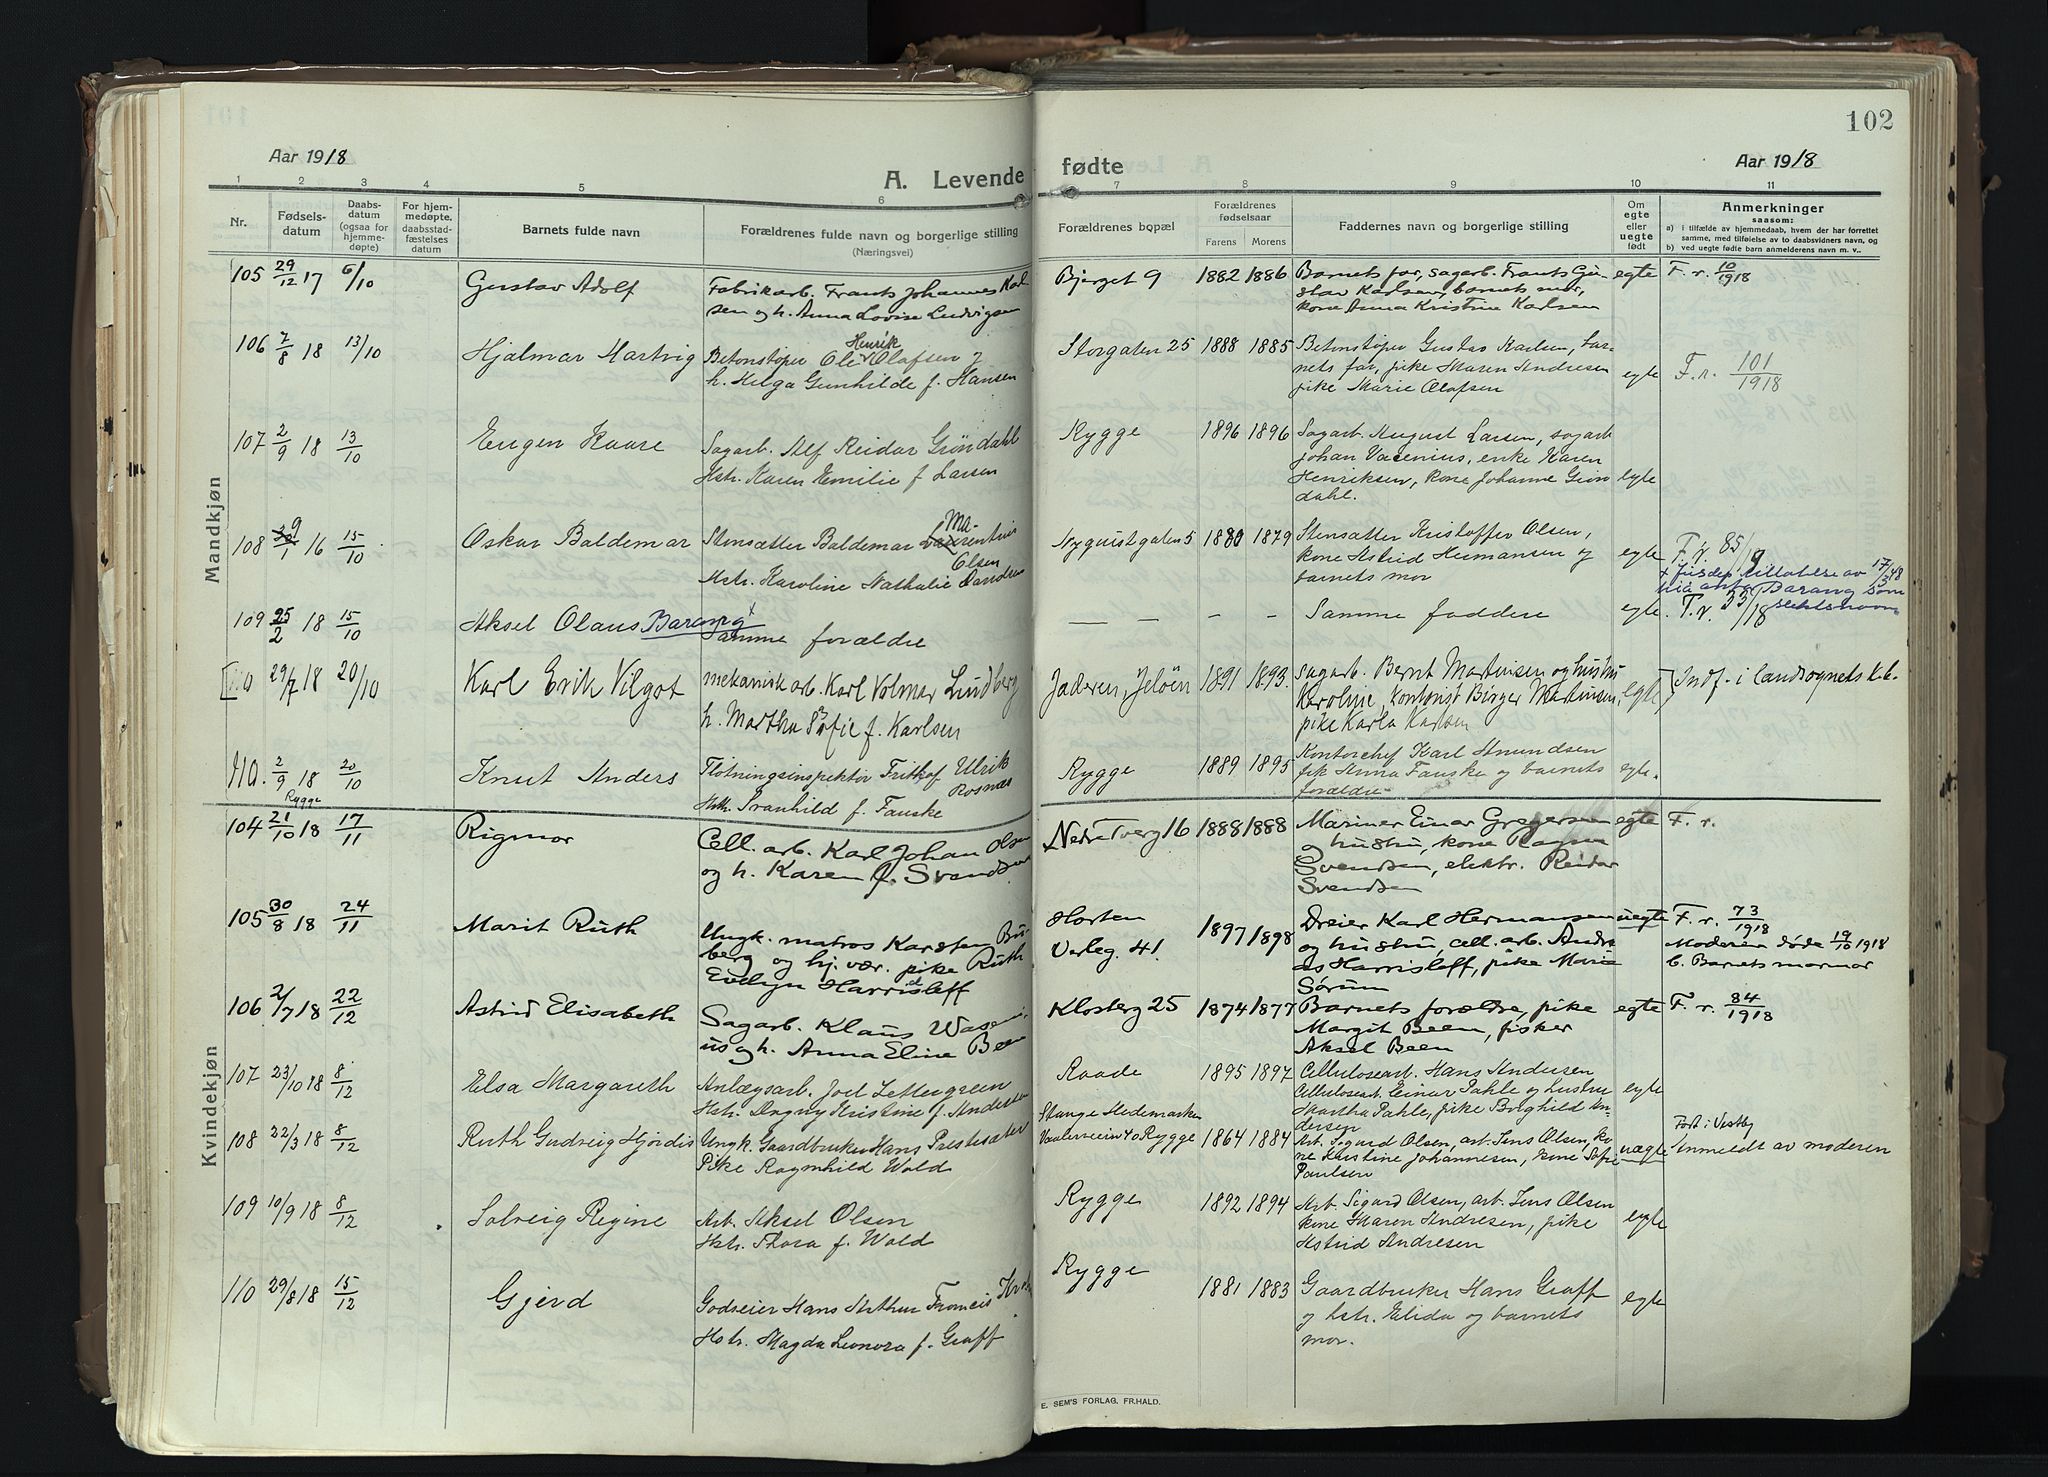 102
Aar 1918
A. Levende fødte
Aar 1918
1 2 3 4 5 6 7 8 9 10 11
Nr.
Fødsels-
datum
Daabs-
datum
(ogsaa for
hjemme-
døpte)
For hjem-
medøpte,
daabsstad-
fæstelses
datum
Barnets fulde navn
Forældrenes fulde navn og borgerlige stilling
(Næringsvei)
Forældrenes bopæl
Forældrenes
fødselsaar
Farens Morens
Faddernes navn og borgerlige stilling
Om
egte
eller
uegte
født
Anmerkninger
saasom:
a) i tilfælde av hjemmedaab, hvem der har forrettet
samme, med tilføielse av to daabsvidners navn, og
b) ved uegte fødte barn anmelderens navn m. v..
Mandkjøn
105 29/12 17 6/10 Gustav Adolf
Fabrikarb. Frants Johannes Karl-
sen og h. Anna Lovise Ludvigsen
Bjerget 9 1882 1886
Barnets far, sagarb. Frants Gu-
stav Karlsen, barnets mor,
kone Anna Kristine Karlsen
egte F. r. 10/1918
106 7/8 18 13/10 Hjalmar Hartvig
Betonstøper Ole Henrik Olafsen
h. Helga Gunhilde f. Hansen
Storgaten 25 1888 1885
Betonstøper Gustav Karlsen, bar-
nets far, pike Maren Andresen
pike Marie Olafsen
egte F. r. 101/1918
107 2/9 18 13/10 Eugen Kaare
Sagarb. Alf Reidar Gröndahl
Hstr. Karen Emilie f. Larsen
Rygge 1896 1896
Sagarb. August Larsen, sagarb
Johan Vacenius, enke Karen
Henriksen, kone Johanne Grön
dahl.
egte
108 9/1 16 15/10 Oskar Baldemar
Stensætter Baldemar Ma-
Olsen
Hstr. Karoline Nathalie
Nyquistgaten 5 1880 1879
Stensætter Kristoffer Olsen,
kone Astrid Hermansen og
barnets mor
egte F. r. 85/
+ Jusdep. tillatelse av 17/3 48
Barang som
slektsnavn
109 25/2 18 15/10 Aksel Olaus Barang +
Samme forældre
— — - -
Samme faddere
egte. F. r. 33/18
[110 29/7 18 20/10 Karl Erik Vilgot
mekanisk arb. Karl Volmar Lundberg
h. Martha Sofie f. Karlsen
Jaderen, Jeløen 1891 1893.
Sagarb. Bernt Martinsen og hustru
Karoline, kontorist Birger Martinsen,
pike Karla Karlsen
egte] Indf. i landsognets k.b.
110. 2/9 18 20/10 Knut Anders
Rygge
Fløtningsinspektør Frithof Ulrik
Rosnæs
Hstr. Svanhild f. Fauske
Rygge 1889 1895
Kontorchef Karl Amundsen
frk Anna Fauske og barnets
forældre
egte.
Kvindekjøn
104 21/10 18 17/11 Rigmor
Cell. arb. Karl Johan Olsen
og h. Karen f. Svendsen
Nedre Tverg 16 1888 1888
Mariner Einar Gregersen
og hustru, kone Ragna
Svendsen, elektr. Reidar
Svendsen
egte F. r.
105 30/8 18 24/11 Marit Ruth
Ungk. matros Karsten Bu-
berg og hj. vær. pike Ruth
Evelyn Harrisleff
Horten
Verleg. 41 1897 1898
Dreier Karl Hermansen
og hustru, cell. arb. Andre-
as Harrisleff, pike Marie
Sörum
uegte F. r. 73/1918
Moderen døde 19/10 1918
b. Barnets mormor
106 2/7 18 22/12 Astrid Elisabeth
Sagarb. Klaus Waseni-
us og h. Anna Eline Been
Klosterg 25 1874 1877
Barnets forældre, pike
Margit Been, fisker
Aksel Been
egte F. r. 84/1918
107 23/10 18 8/12 Elsa Margareth
Anlægsarb. Joel Zettergreen
Hstr. Dagny Kristine f. Andersen
Raade 1895 1897
Cellulosearb. Hans Andersen
Cellulosearb. Einar Pahle og hustru
Martha Pahle, pike Borghild An-
dersen
egte
108 22/3 18 8/12 Ruth Gudveig Hjördis
Ungk. Gaardbruker Hans Prestesæter
Pike Ragnhild Wold
Stange Hedemarken
Rygge 1864 1884
Arb. Sigurd Olsen, arb. Jens Olsen, ko-
ne Kristine Johannesen, kone Sofie
Paulsen
uægte
Født i Vestby
Anmeldt av moderen
109 10/9 18 8/12 Solveig Regine
Arb. Aksel Olsen
Hstr. Thora f. Wold
Rygge 1892 1894
Arb. Sigurd Olsen, arb. Jens Olsen
kone Maren Andresen, pike
Astrid Andresen
egte
110 29/8 18 15/12 Gjerd
Godseier Hans Arthur Francis
Hstr. Magda Leonora f. Graff
Rygge
1881 1883
Gaardbruker Hans Graff
og hstr. Elida og barnets
mor.
egte
E. SEM'S FORLAG, FR.HALD.